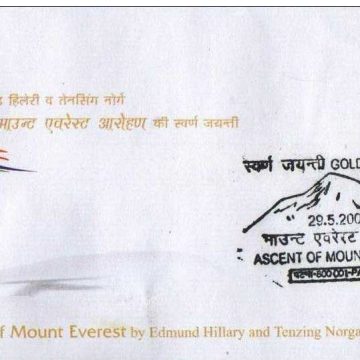 हिलेरी व तेनसिंग नोर्गे
माउन्ट एवरेस्ट आरोहण की स्वर्ण जयन्ती
स्वर्ण जयन्ती GOLD
29.5.200
माउन्ट एवरेस्ट
ASCENT OF MOUN
of Mount Everest by Edmund Hillary and Tenzing Norga